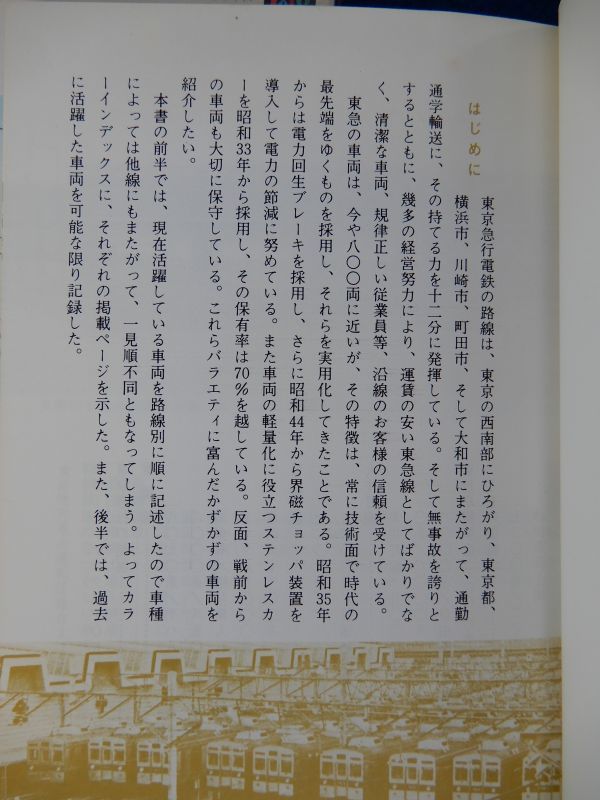 はじめに
東京急行電鉄の路線は、東京の西南部にひろがり、東京都、
横浜市、川崎市、町田市、そして大和市にまたがって、通勤
通学輸送に、その持てる力を十二分に発揮している。そして無事故を誇りと
するとともに、幾多の経営努力により、運賃の安い東急線としてばかりでな
く、清潔な車両、規律正しい従業員等、沿線のお客様の信頼を受けている。
東急の車両は、今や八〇〇両に近いが、その特徴は、常に技術面で時代の
最先端をゆくものを採用し、それらを実用化してきたことである。昭和35年
からは電力回生ブレーキを採用し、さらに昭和44年から界磁チョッパ装置を
導入して電力の節減に努めている。また車両の軽量化に役立つステンレスカ
ーを昭和33年から採用し、その保有率は70%を越している。反面、戦前から
の車両も大切に保守している。これらバラエティに富んだかずかずの車両を
紹介したい。
本書の前半では、現在活躍している車両を路線別に順に記述したので車種
によっては他線にもまたがって、一見順不同ともなってしまう。よってカラ
ーインデックスに、それぞれの掲載ページを示した。また、後半では、過去
に活躍した車両を可能な限り記録した。